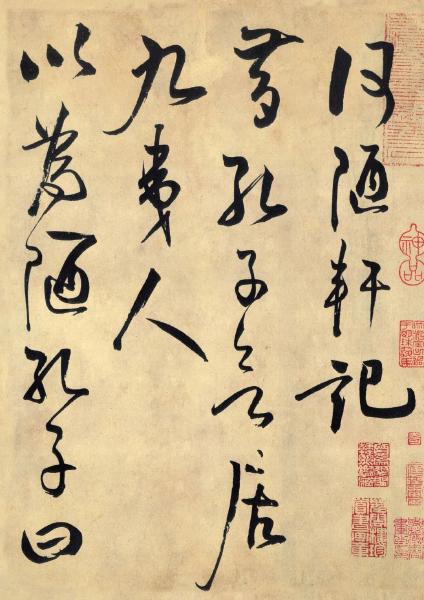 何陋軒記
昔孔子欲居
九夷人
以為陋孔子曰
神品